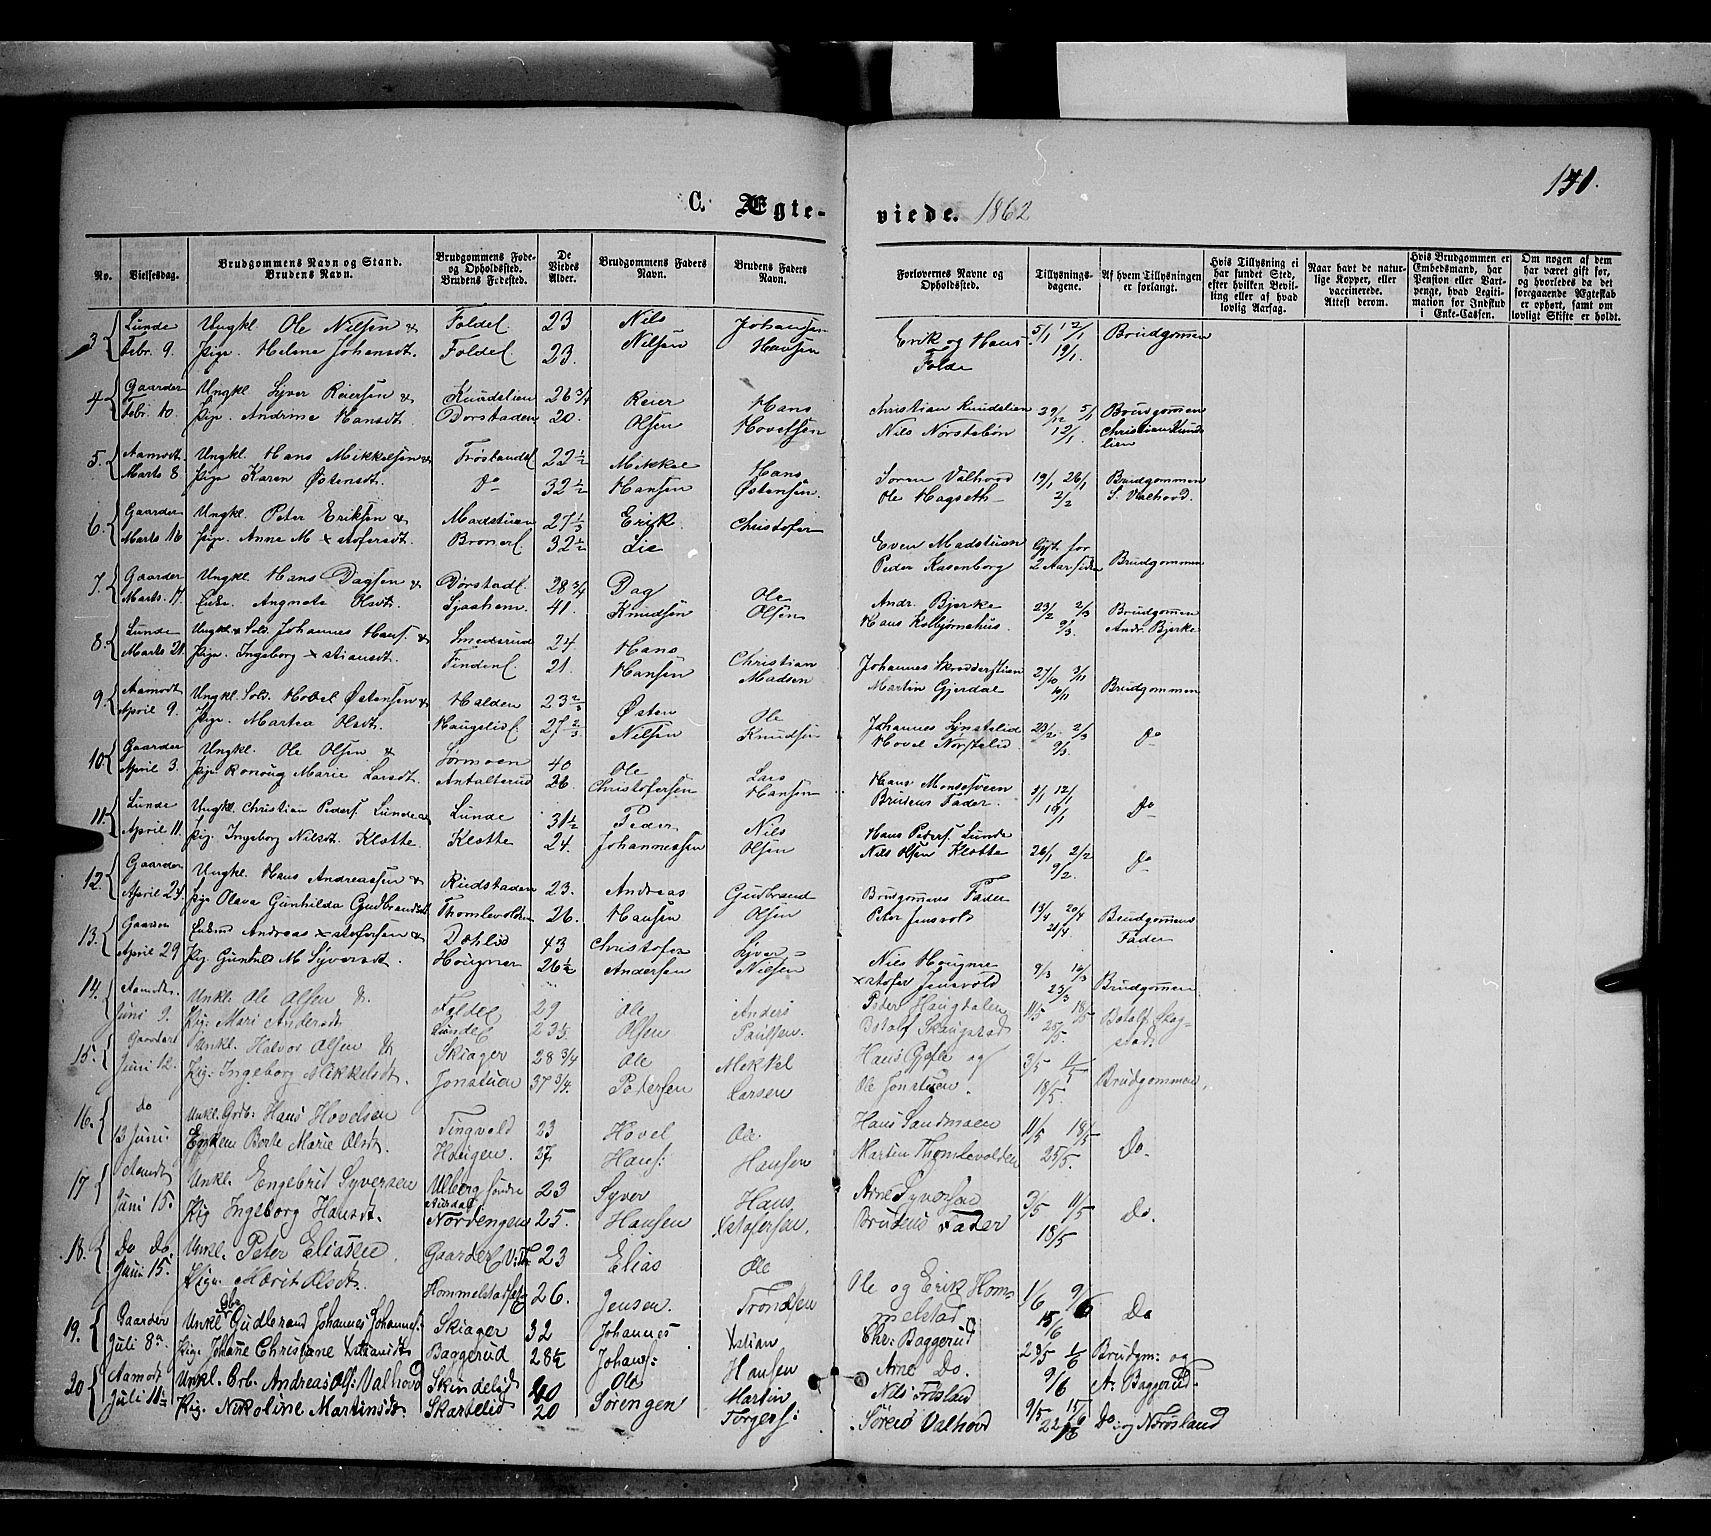 141.
C. Ægte-
viede. 1862
No. Vielsesdag. Brudgommens Navn og Stand. Brudens Navn. Brudgommens Føde- og Opholdssted. Brudens Fødested. De Viedes Alder. Brudgommens Faders Navn. Brudens Faders Navn. Forlovernes Navne og Opholdssted. Tillysnings-dagene. Af hvem Tillysningen er forlangt. Hvis Tillysning ei har fundet Sted, efter hvilken Bevilling eller af hvad lovlig Aarsag. Naar havt de naturlige Kopper, eller vaccinerede. Attest derom. Hvis Brudgommen er Embedsmand, har Pension eller Vartpenge, hvad Legitimation for Indskud i Enke-Cassen. Om nogen af dem har været gift før, og hvorledes da det foregaaende Ægteskab er ophørt, samt om lovligt Skifte er holdt.
3 Lunde Ungkl. Ole Nilsen & Foldel 23 Nils Johansen Erik og Hans 5/1 12/1 Brudgommen
Febr. 9. Pige. Helene Johansdt. Foldel 23. Nilsen Hansen Folde 19/1.
4 Gaarder Ungkl. Syver Reiersen & Knudslien 26 3/4 Reier Hans Christian Knudslien 29/12 5/1 Brudgommen
Febr. 10. Pige. Andrine Hansdt. Dorstaden 20. Olsen Hovelsen Nils Nørstebøn 12/1. Christian Kundslien
5. Aamodt Ungkl. Hans Mikkelsen & Trøslandsl 22 1/2 Mikkel Hans Soren Valhovd 19/1 26/1 Brudgommen
Marts 8 Pige Karen Østensdt. Do 32 1/2 Hansen Østensen. Ole Hagseth 2/2 S. Valhovd.
6. Gaarder Ungkl. Peter Eriksen & Madstuen 27 1/3 Erik Christofer Even Madstuen Lyst for
Marts 16 Pige. Anne M xstofersdt. Bronerl. 32 1/2 Lie Peder Kasenborg 2 Aar siden Brudgommen
7. Gaarder Ungkl. Hans Dagsen & Dørstadl. 28 3/4 Dag Ole Andr. Bjerke 23/2 2/3 Brudgommen
Marts. 17. Enke. Angnete Olsdt. Sjaahem. 41. Knudsen Olsen Hans Kolbjørnshus. 9/3. Andr. Bjerke
8. Lunde Ungkl. Sold. Johannes Hans. & Smedsrud 24. Hans Christian Johannes Skrodderstuen 27/10 3/11
Marts 21. Pige. Ingeborg xstiansdt. Findenl. 21. Hansen Madsen Martin Gjerdal 10/11 Brudgommen
9. Aamodt Ungkl. Sold. Hovel Østensen & Halden 23 2/3 Østen Ole Johannes 23/2. 2/3 Do
April 9. Pige. Martea Olsdt. Haugslidl. 27 2/3 Nilsen Knudsen Hovel Norstelid. 9/3.
10. Gaarder Ungkl. Ole Olsen & Sørmoen 40 Ole Lars Hans 5/1 12/1
April 3. Pige Ronoug Marie Larsdt. Antalterud 26. Christofersen Hansen Brudens Fader. 19/1 Do
11. Lunde Ungkl. Christian Peders. Lunde & Lunde 31 1/2 Peder Nils Hans Peders. Lunde
April 11. Pig. Ingeborg Nilsdt. Klotte. Klotte 24. Johannessen Olsen Nils Olsen Klotte. 26/1 2/2 9/2. Do
12. Gaarder Ungkl. Hans Andreassen & Rudstaden 23. Andreas Gudbrand Brudgommens Fader
April 24. Pige Olava Gunhilda Gudbrandsdt. Thomlevolden 26. Hansen Olsen Peter Jensvold 13/4 20/4 21/4 Brudgommens Fader
13. Gaarder Enkem Andreas xstofersen & Dæhlid 43 Christofer Syver
April 29 Pig. Gunhild M Syversdt. Hougner 26 1/2 Andersen Nilsen Nils Hougner 9/3 16/3 xstofer Jensvold 23/3 Brudgommen
14. Aamodt. Unkl. Ole Olsen &. Foldel 29 Ole Anders Peter Haugdalen 11/5 18/5 Botolf Skog-
Juni 9. Pig. Mari Andersdt Lundel 23 1/2 Olsen Paulsen. Botolf Skaugstad 25/5. stad.
15. Gaarder Unkl. Halvor Olsen & Skiager 28 3/4 Ole Mekkel Hans Gjefle og 3/5 11/5
Juni 12. Pig: Ingeborg Mikkelsdt. Jonstuen 37 3/4. Pedersen Larsen Ole Jonstuen. 18/5. Brudgommen.
16. do Unkl. Grdb: Hans Hovelsen Tingvold 23 Hovel Ole Hans Sandmoen 11/5 18/5
13 Juni. Enken Borte Marie Olsdt. Haugen. 27 Hans: Hansen Martin Thomlevolden 25/5. Do.
17 Aamdt Unkl. Engebrit Syversen Ulberg søndre Aursdal 23 Syver Hans Arne Syversen 3/5 11/5
Juni 15. Pig Ingeborg Hansdt. Nordengen 25. Hansen Xstofersen. Brudens Fader 18/5 Do.
18. Do Do. Unkl. Peter Eliassen. Gaarderl V: Th. 23 Elias Ole
Juni 15. Pige. Marit Olsdt. Hommelstad 26. Jensen. Trondsen Ole og Erik Hom- 1/6 9/6 melstad 15/6 Do
19. Gaarder Unkl Gbr Gudbrand Johannes Johannes: Skiager 32 Johannes Xstian Chr: Baggerud
Juli 8de Pig: Johane Christiane Xstiansdt Baggerud 28 1/2 Johans: Hansen Arne Do. 25/5 1/6 9/6 Brudgm: og A: Baggerud
20 Aamodt Unkl. Grb. Andreas Ols: Valhovd Skindelid 40 Ole Martin Nils
Juli 11te Pig. Nikoline Martinsdt. Skartelid 20 Sørengen Torgers: Søren Valhovd 9/5 15/6 22/6 Do: og